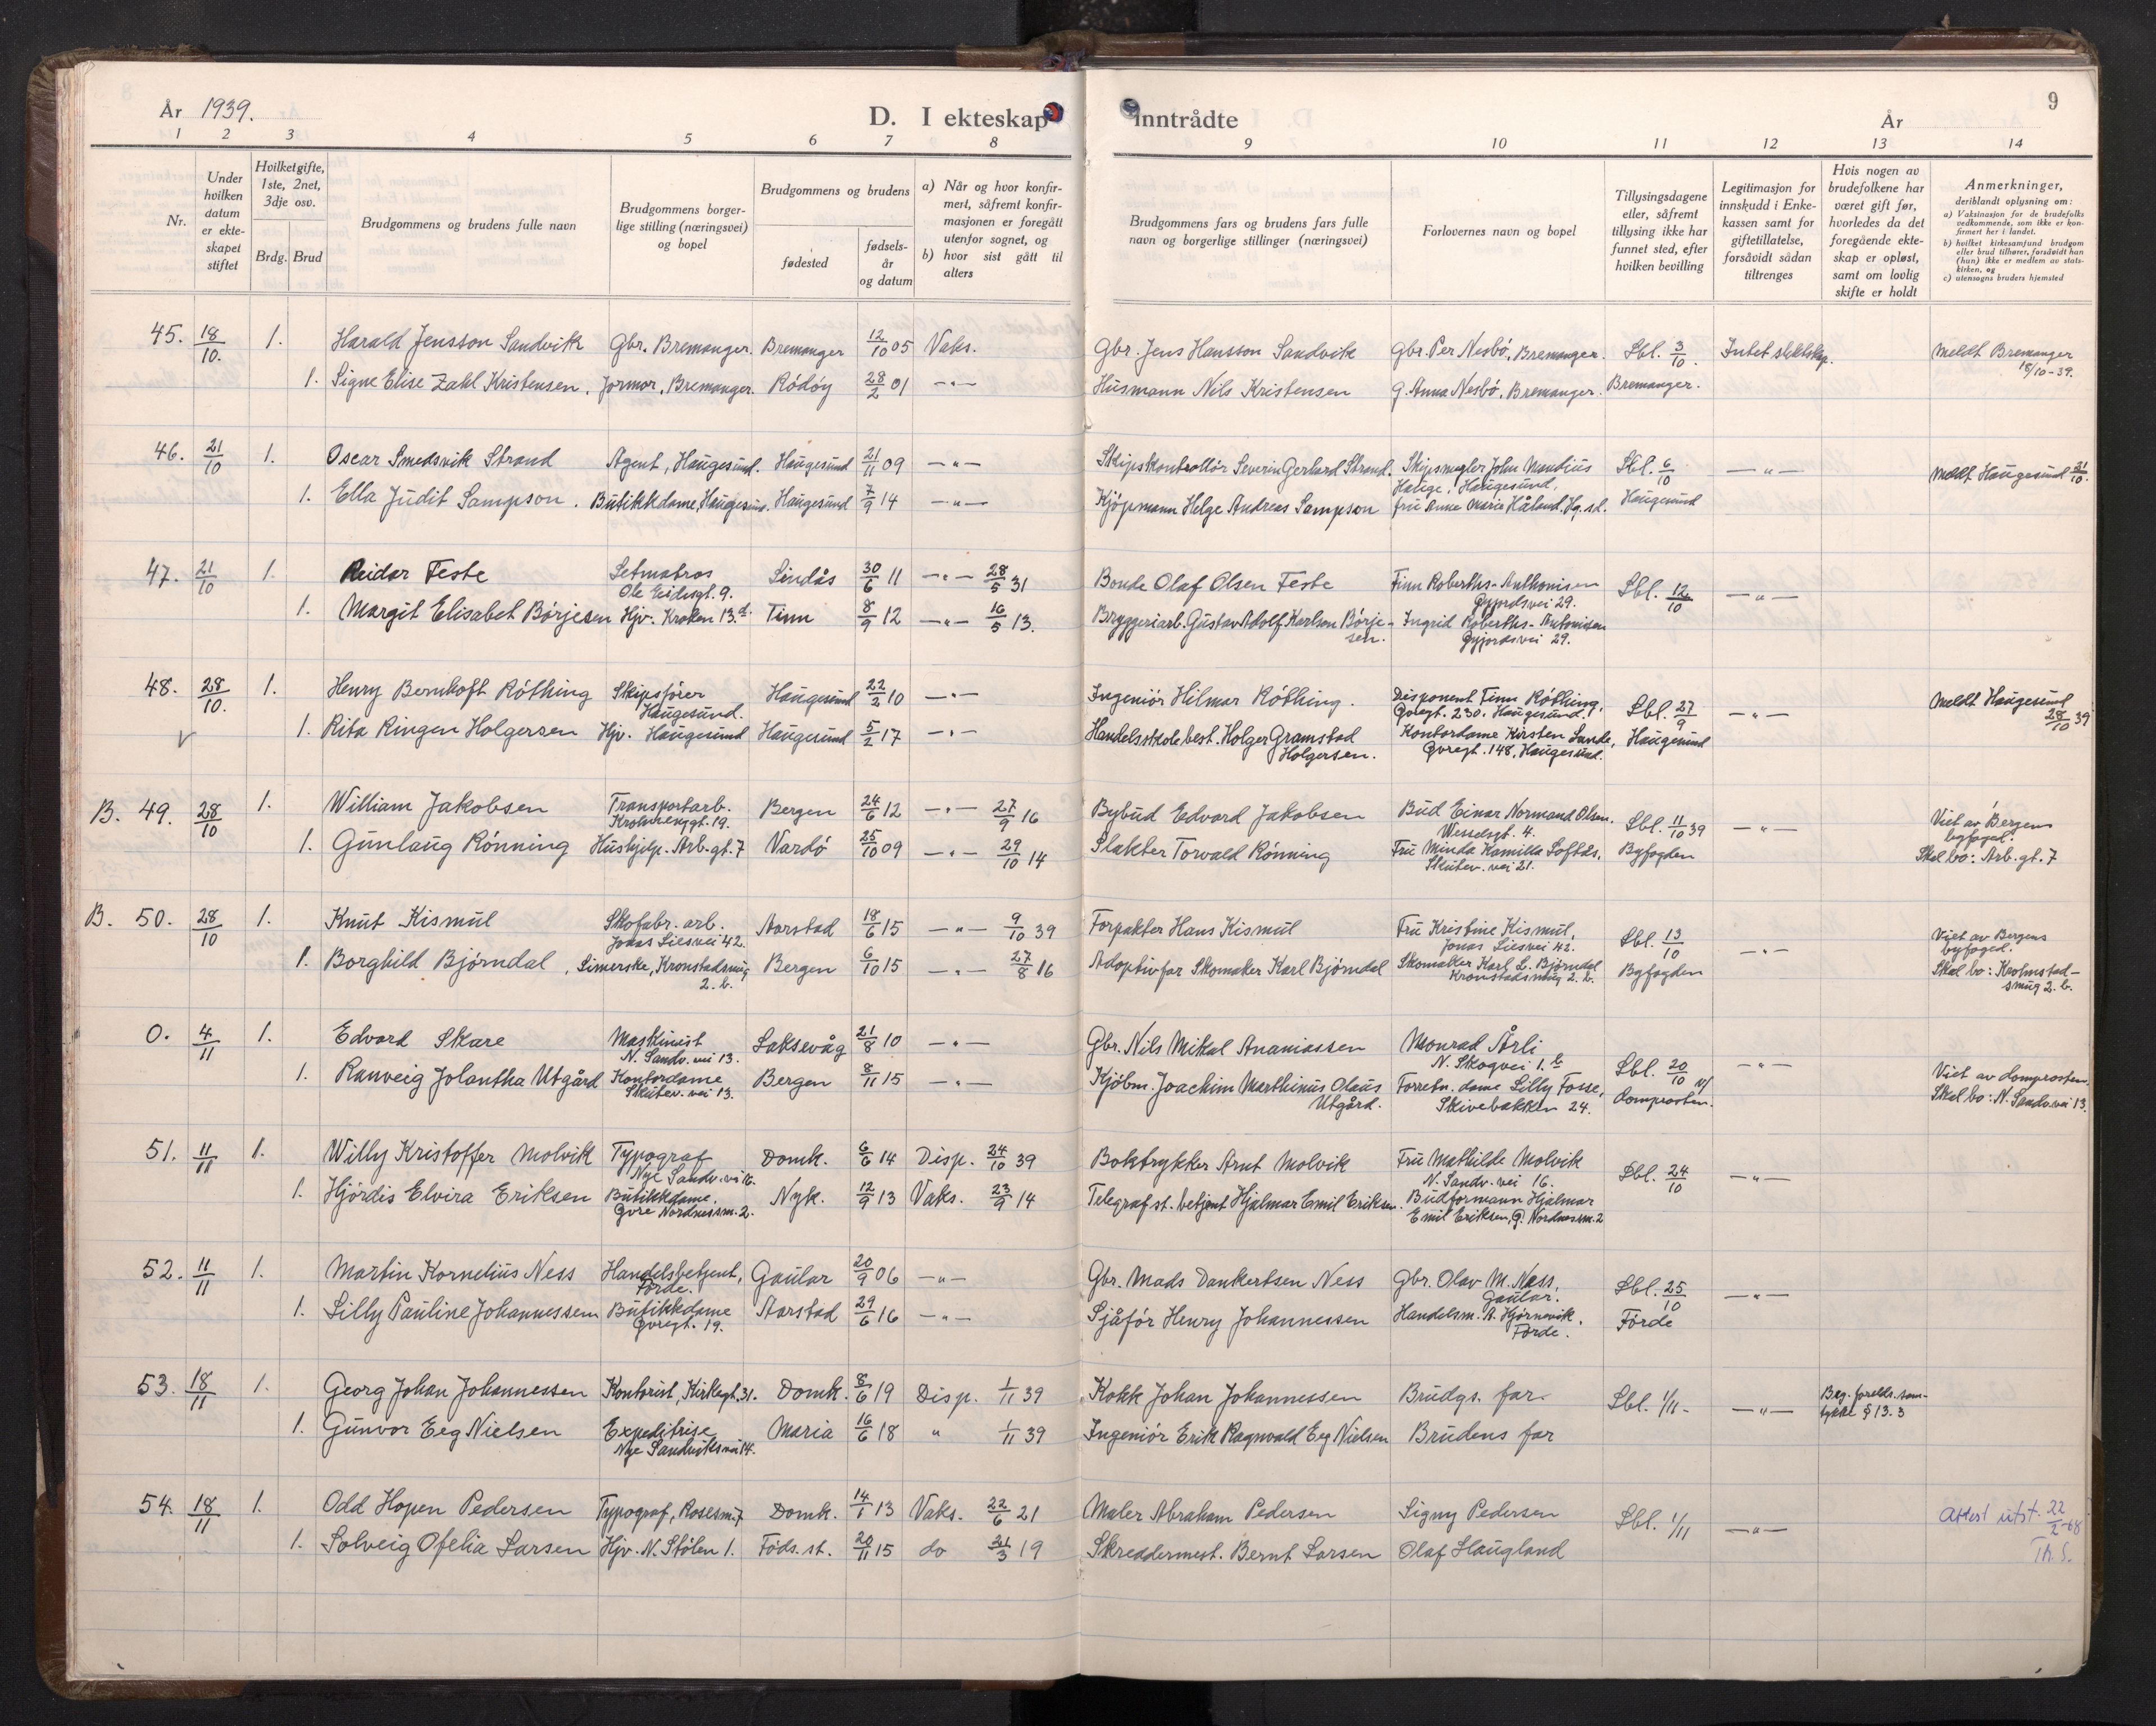 År 1939.
D. I ekteskap inntrådte
År
9
1 2 3 4 5 6 7 8 9 10 11 12 13 14
Nr.
Under hvilken datum er ekteskapet stiftet
Hvilket gifte, 1ste, 2net, 3dje osv.
Brdg. Brud
Brudgommens og brudens fulle navn
Brudgommens borgerlige stilling (næringsvei) og bopel
Brudgommens og brudens
fødested
fødselsår og datum
a) Når og hvor konfirmert, såfremt konfirmasjonen er foregått utenfor sognet, og
b) hvor sist gått til alters
Brudgommens fars og brudens fars fulle navn og borgerlige stillinger (næringsvei)
Forlovernes navn og bopel
Tillysingsdagene eller, såfremt tillysing ikke har funnet sted, efter hvilken bevilling
Legitimasjon for innskudd i Enkekassen samt for giftetillatelse, forsåvidt sådan tiltrenges
Hvis nogen av brudefolkene har været gift før, hvorledes da det foregående ekteskap er opløst, samt om lovlig skifte er holdt
Anmerkninger, deriblandt oplysning om:
a) Vaksinasjon for de brudefolks vedkommende, som ikke er konfirmert her i landet.
b) hvilket kirkesamfund brudgom eller brud tilhører, forsåvidt han (hun) ikke er medlem av statskirken, og
c) utensogns bruders hjemsted
45. 18/10. 1. Harald Jensson Sandvik Gbr. Bremanger. Bremanger 12/10 05 Vaks. Gbr. Jens Hansson Sandvik Gbr. Per Nesbö, Bremanger. Lbl. 3/10. Intet slektskap. Meldt Bremanger 18/10-39.
1. Signe Elise Zahl Kristensen. Jormor, Bremanger. Rödöy 28/2 01 —"— Husmann Nils Kristensen G. Anna Nesbö, Bremanger. Bremanger.
46. 21/10 1. Oscar Smedsvik Strand Agent, Haugesund. Haugesund 21/11 09 —"— Skipskontrollör Severin Gerhard Strand. Skipsmegler John Mundius Hauge, Haugesund. Lbl. 6/10 —"— Meldt Haugesund 21/10.
1. Ella Judit Sampson. Butikkdame, Haugesund. Haugesund 7/9 14 —"— Kjöpmann Helge Andreas Sampson fru Anne Marie Håland, Hg.sd. Haugesund
47. 21/10 1. Reidar Feste Letmatros Ole Eidesgt. 9. Lindås 30/6 11 —"— 28/5 31 Bonde Olaf Olsen Feste Finn Roberths-Anthonisen Gyjordsvei 29. Lbl. 12/10 —"—
1. Margit Elisabet Börjesen Hjv. Kroken 13.d. Tinn 8/9 12 —"— 16/5 13. Bryggeriarb. Gustav Adolf Karlsen Börjesen. Ingrid Roberths-Antonisen Gyjordsvei 29.
48. 28/10. 1. Henry Bernhoft Röthing Skipsförer Haugesund. Haugesund 22/2 10 —"— Ingeniör Hilmar Röthing. Disponent Finn Röthing, Övregt. 230. Haugesund. Lbl. 27/9 —"— Meldt Haugesund 28/10 39
1. Rita Ringen Holgersen Hjv. Haugesund Haugesund 5/2 17 —"— Handelsskolebest. Holger Gramstad Holgersen. Kontordame Kirsten Lande, Övregt. 148, Haugesund. Haugesund
B. 49. 28/10 1. William Jakobsen Transportarb. Krohnenggt. 19. Bergen 24/6 12 —"— 27/9 16 Bybud Edvard Jakobsen Bud Einar Normand Olsen. Wesselsgt. 4. Lbl. 11/10 39 —"— Viet av Bergens byfoged.
1. Gunlaug Rönning Hushjelp. Arb.gt. 7 Vardö 25/10 09 —"— 29/10 14 Slakter Torvald Rönning Fru Minda Kamilla Loftås, Skutev. vei 21. Byfogden Skal bo: Arb.gt. 7
B. 50. 28/10 1. Knut Kismul Skofabr. arb. Jonas Liesvei 42. Aarstad 18/6 15 —"— 9/10 39 Forpakter Hans Kismul Fru Kristine Kismul, Jonas Liesvei 42. Lbl. 13/10 —"— Viet av Bergens byfoged.
1. Borghild Björndal, Limerske, Kronstadsmug 2.b. Bergen 6/10 15 —"— 27/8 16 Adoptivfar Skomaker Karl Björndal Skomaker Karl L. Björndal Kronstadsmug 2.b. Byfogden Skal bo: Krohnstadsmug 2.b.
0. 4/11 1. Edvard Skare Maskinist N. Sandv. vei 13. Laksevåg 21/8 10 —"— Gbr. Nils Mikal Ananiassen Monrad Årli N. Skogvei 1.b Lbl. 20/10 —"— Viet av domprosten.
1. Ranveig Jolantha Utgård Kontordame Skutev. vei 13. Bergen 8/11 15 —"— Kjöbm. Joachim Marthinus Olaus Utgård. Forretn. dame Lilly Fosse, Skivebakken 24. v/ domprosten. Skal bo: N. Sandv. vei 13.
51. 11/11 1. Willy Kristoffer Molvik Typograf Nye Sandv. vei 16. Domk. 6/6 14 Disp. 24/10 39 Boktrykker Arnt Molvik Fru Mathilde Molvik N. Sandv. vei 16. Lbl. 24/10 —"—
1. Hjördis Elvira Eriksen Butikkdame. Övre Nordnessm. 2. Nyk. 12/9 13 Vaks. 23/9 14 Telegrafst. betjent Hjalmar Emil Eriksen. Budformann Hjalmar Emil Eriksen, Ö. Nordnessm. 2
52. 11/11 1. Martin Kornelius Ness Handelsbetjent, Förde. Gaular 20/9 06 —"— Gbr. Mads Dankertsen Ness Gbr. Olav M. Ness. Gaular. Lbl. 25/10 —"—
1. Lilly Pauline Johannessen Butikkdame Övregt. 19. Aarstad 29/6 16 —"— Sjåför Henry Johannessen Handelsm. A. Hjörnevik. Förde. Förde
53. 18/11 1. Georg Johan Johannessen Kontorist, Kirkegt. 31. Domk. 8/6 19 Disp. 1/11 39 Kokk Johan Johannessen Brudgs. far. Lbl. 1/11- —"— Beg. forelds. samtykke § 13.3
1. Gunvor Eeg Nielsen Expeditrise Nye Sandviksvei 14. Maria 16/6 18 " 1/11 39 Ingeniör Erik Ragnvald Eeg Nielsen Brudens far
54. 18/11 1. Odd Hopen Pedersen Typograf, Rosesm. 7 Domk. 14/1 13 Vaks. 22/6 21 Maler Abraham Pedersen Signy Pedersen Lbl. 1/11 —"— Attest utst. 22/2-68 Th.S.
1. Solveig Ofelia Larsen Hjv. N. Stölen 1. Föds. st. 20/11 15 do 21/3 19 Skreddermest. Bernt Larsen Olaf Haugland